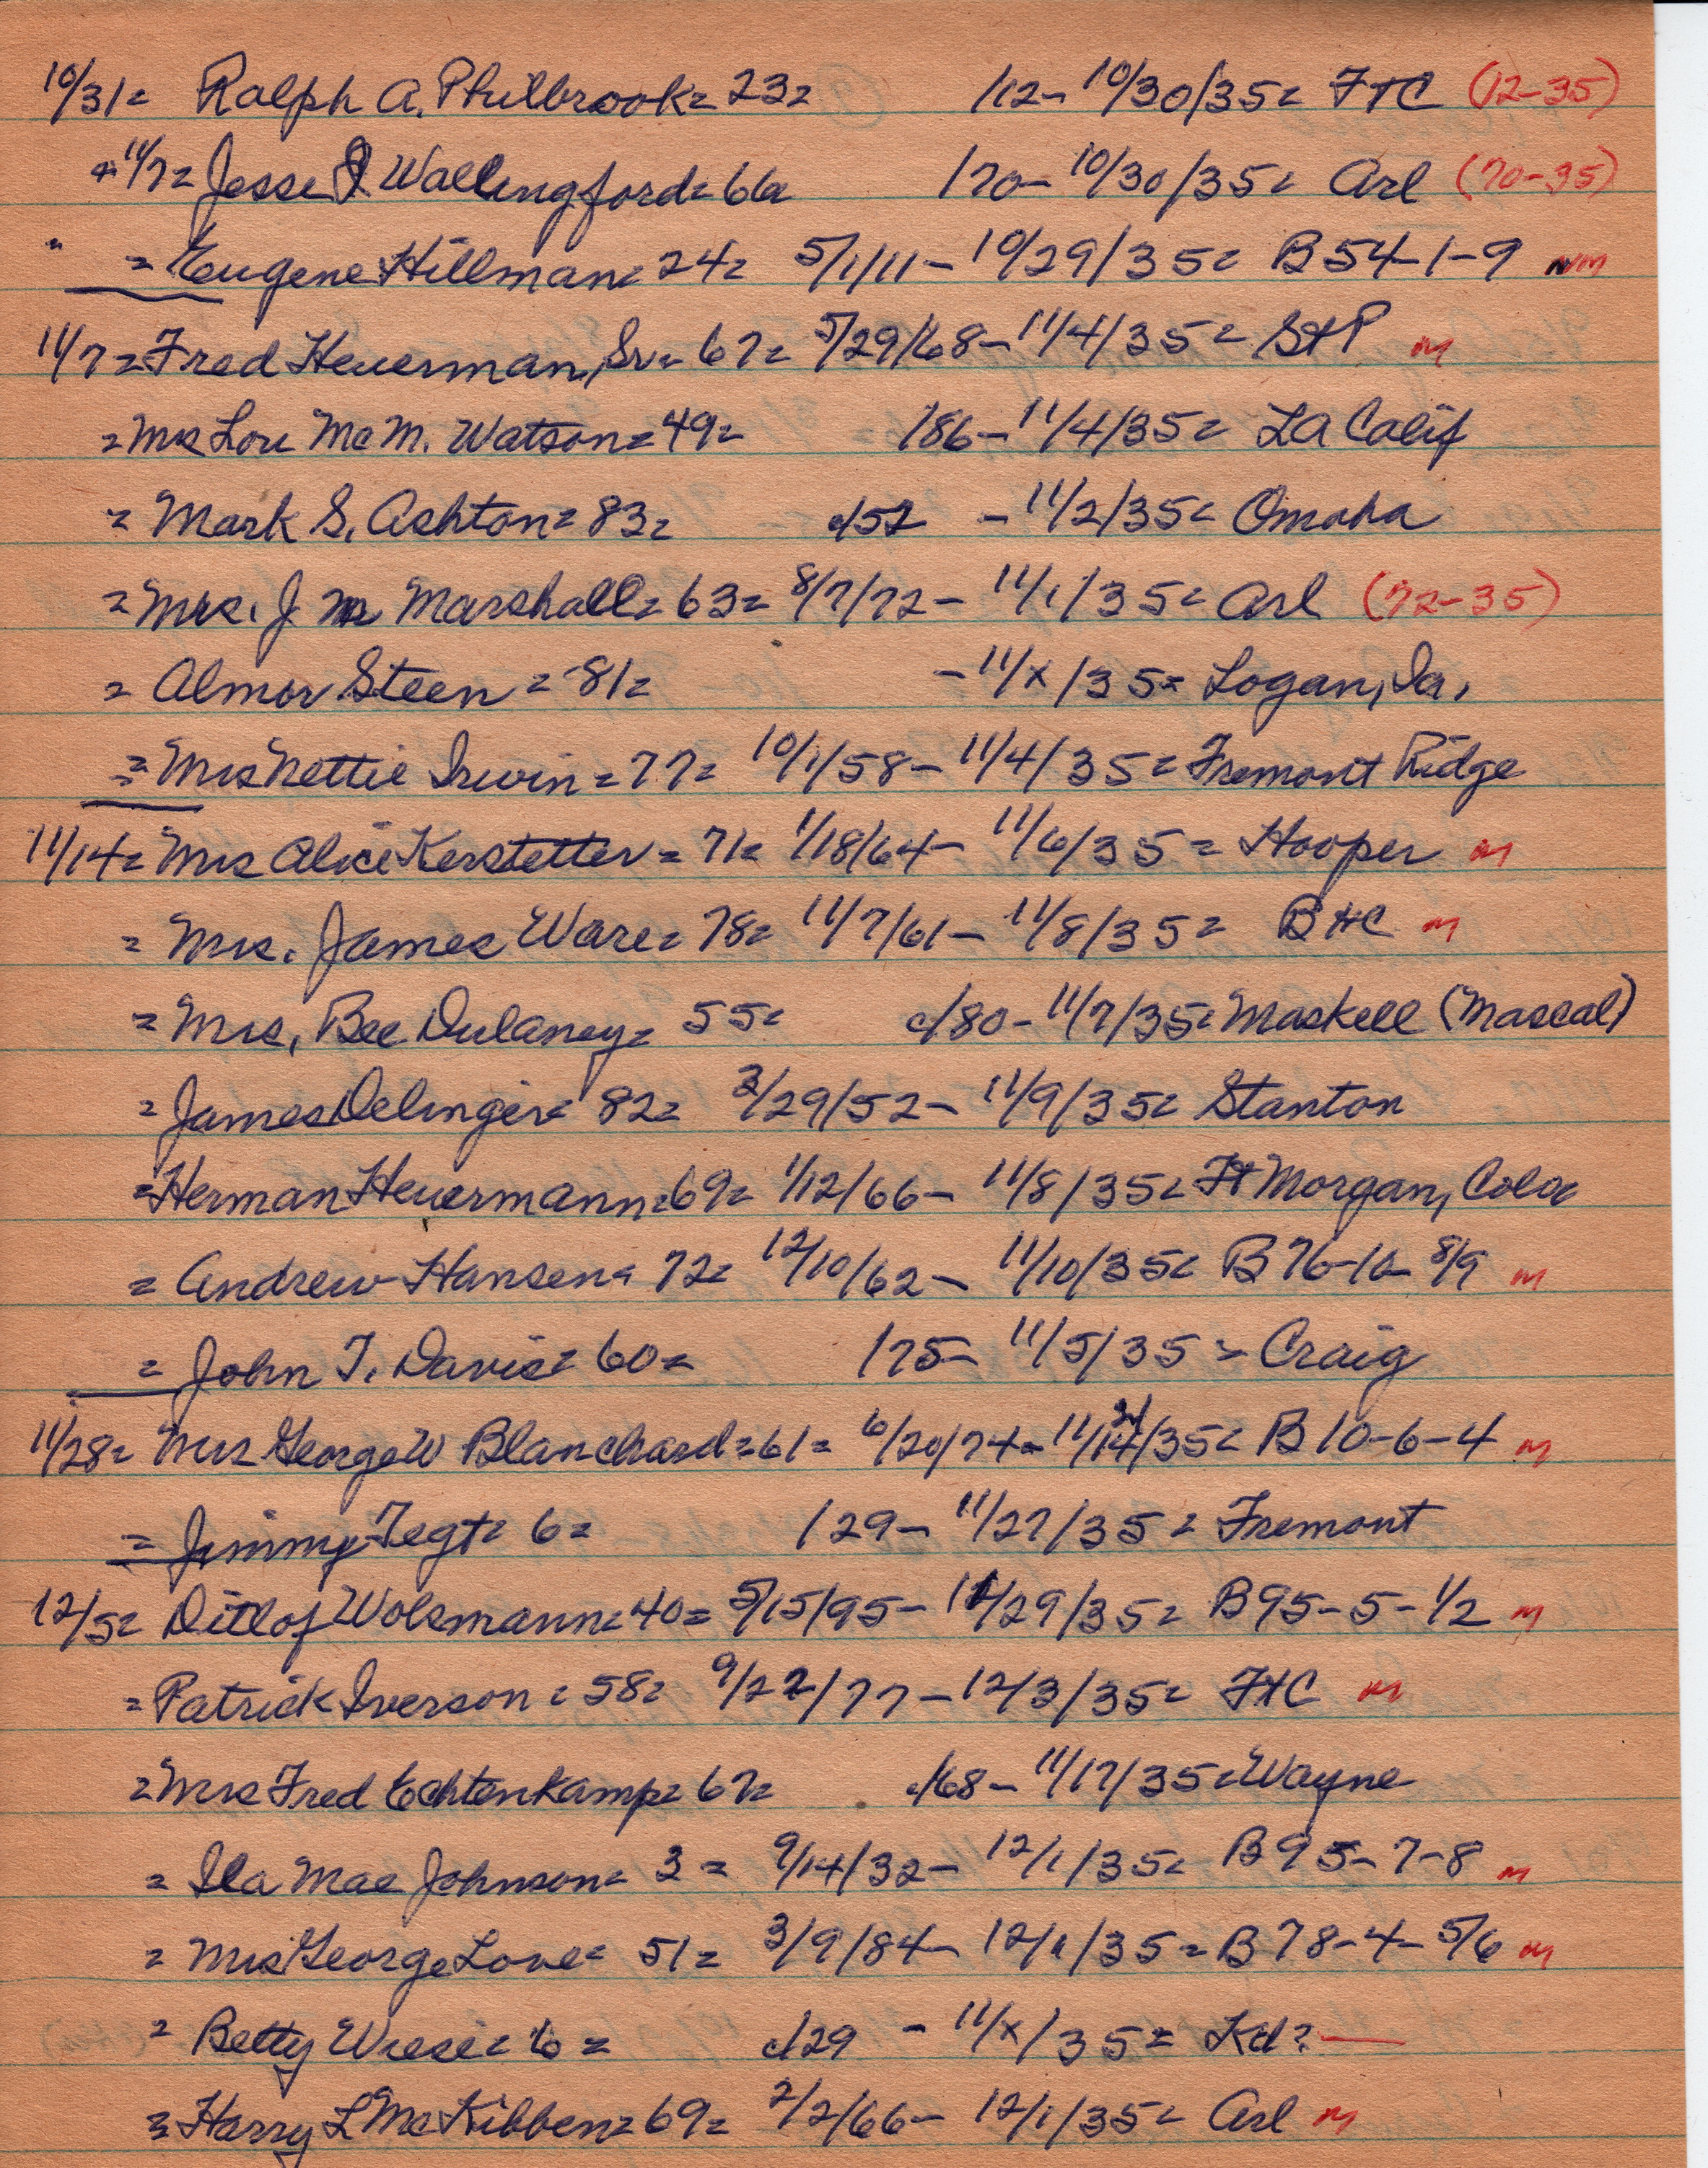 10/31= Ralph A. Philbrook= 23= /12- 10/30/35= FtC (12-35)
11/7= Jesse Wallingford= 66 /70- 10/30/35= Arl (70-35)
" = Eugene Hillman= 24= 5/1/11- 10/29/35= B54-1-9 m
11/7= Fred Heuerman, Sr= 67= 5/29/68- 11/4/35= StP m
= Mrs Lou McM. Watson= 49= /86- 11/4/35= LA Calif
= Mark S. Ashton= 83= c/52 - 11/2/35= Omaha
= Mrs. J M Marshall= 63= 8/7/72- 11/1/35= Arl (72-35)
= Almor Steen= 81= - 11/x/35= Logan, Ia.
= Mrs Nettie Irwin= 77= 10/1/58- 11/4/35= Fremont Ridge
11/14= Mrs Alice Kerstetter= 71= 1/18/64- 11/6/35= Hooper m
= Mrs. James Ware= 78= 11/7/61- 11/8/35= BHC m
= Mrs. Bee Dulaney= 55= c/80- 11/7/35= Maskell (Mascal)
= James Delinger= 82= 3/29/52- 11/9/35= Stanton
= Herman Heuermann= 69= 1/12/66- 11/8/35= Ft Morgan, Colo
= Andrew Hansen= 72= 12/10/62- 11/10/35= B76-16-8/9 m
= John T. Davis= 60= /75- 11/5/35= Craig
11/28= Mrs George W Blanchard= 61= 6/20/74- 11/24/35= B10-6-4 m
= Jimmy Tegt= 6= /29- 11/27/35= Fremont
12/5= Ditlof Wolsmann= 40= 5/15/95- 11/29/35= B95-5-1/2 m
= Patrick Iverson= 58= 9/22/77- 12/3/35= FtC m
= Mrs Fred Echtenkamp= 67= c/68- 11/17/35= Wayne
= Ila Mae Johnson= 3= 9/14/32- 12/1/35= B95-7-8 m
= Mrs George Love= 51= 3/9/84- 12/1/35= B78-4-5/6 m
= Betty Wiese= 6= c/29 - 11/x/35= Kd?
= Harry L McKibben= 69= 2/2/66- 12/1/35= Arl m